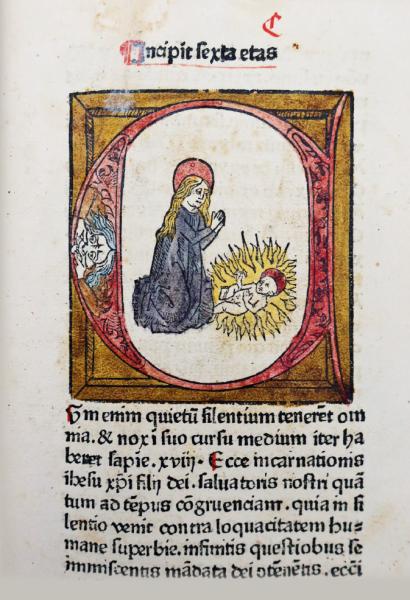 C
Incipit sexta etas
Um enim quietū silentium teneret om
nia. & nox ī suo cursu medium iter ha
beret sapie. xviii. Ecce incarnationis
ihesu xp̄i filij dei. saluatoris nostri quā
tum ad tēpus cōgruenciam. quia in si
lentio venit contra loquacitatem hu=
mane superbie. infinitis questiobus se
immiscentis mādata dei ↄtēnētis. ecci